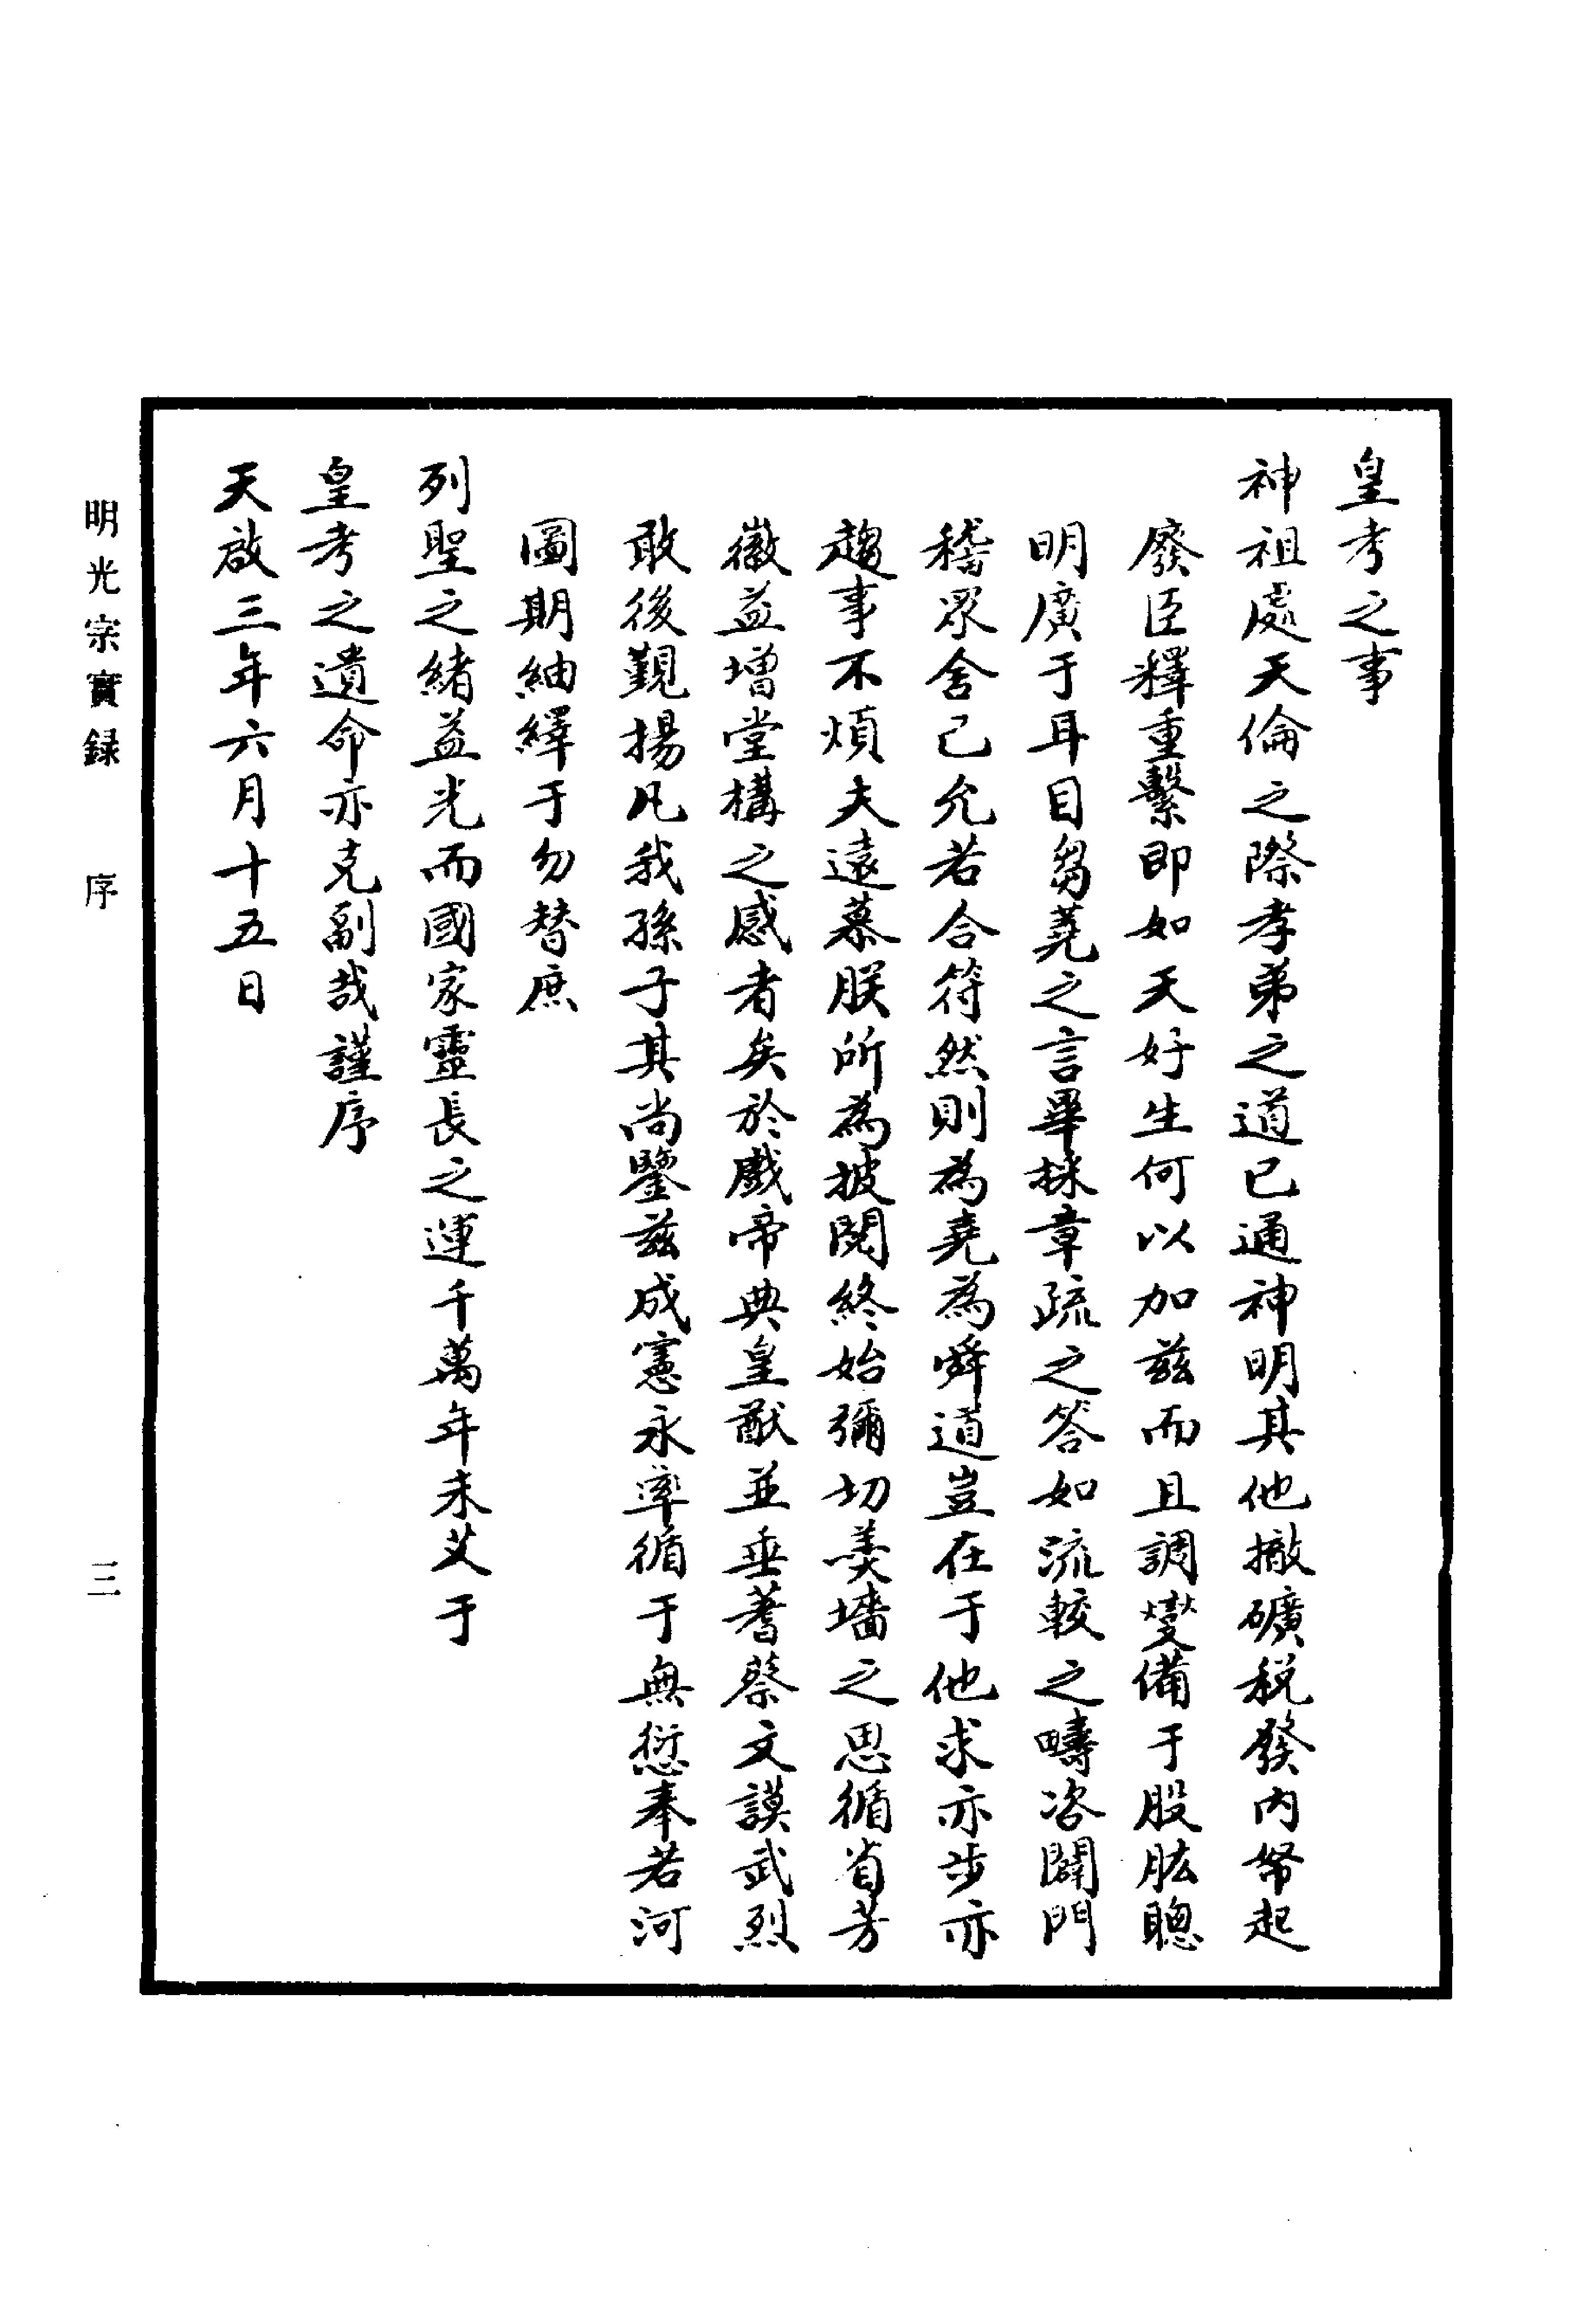 皇考之事
神祖處天倫之際孝弟之道已通神明其他撤礦稅發內帑起
廢臣釋重繫即如天好生何以加茲而且調燮備于股肱聰
明廣于耳目芻蕘之言畢採章疏之答如流較之疇咨闢門
稽眾舍己允若合符然則為堯為舜道豈在于他求亦步亦
趨事不煩夫遠慕朕所為披閱終始彌切羹墻之思循省芳
徽益增堂構之感者矣於戲帝典皇猷並垂蓍蔡文謨武烈
敢後覲揚凡我孫子其尚鑒茲成憲永率循于無愆奉若河
圖期紬繹于勿替庶
列聖之緒益光而國家靈長之運千萬年未艾于
皇考之遺命亦克副哉謹序
天啟三年六月十五日
明光宗實録 序 三